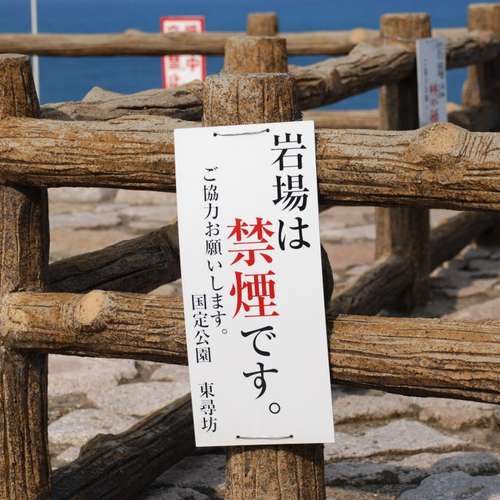 岩場は
禁煙です。
ご協力お願いします。
国定公園　東尋坊